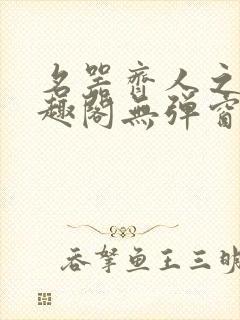 名器齊人之
趣閣無彈窗
吞拏鱼王三明